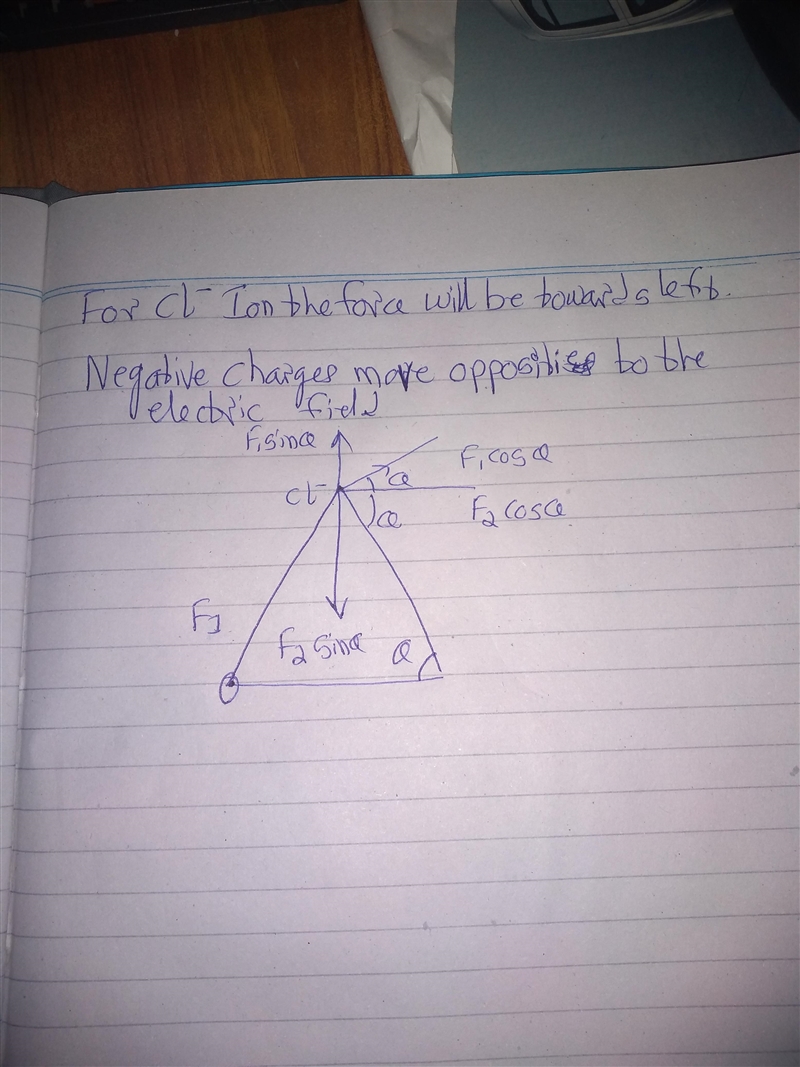 For Cl⁻ Ion the force will be towards left.
Negative charges move opposities to the
electric field
F₁sinθ
F₁cosθ
θ
Cl⁻
F₂cosθ
θ
F₁
F₂sinθ
θ